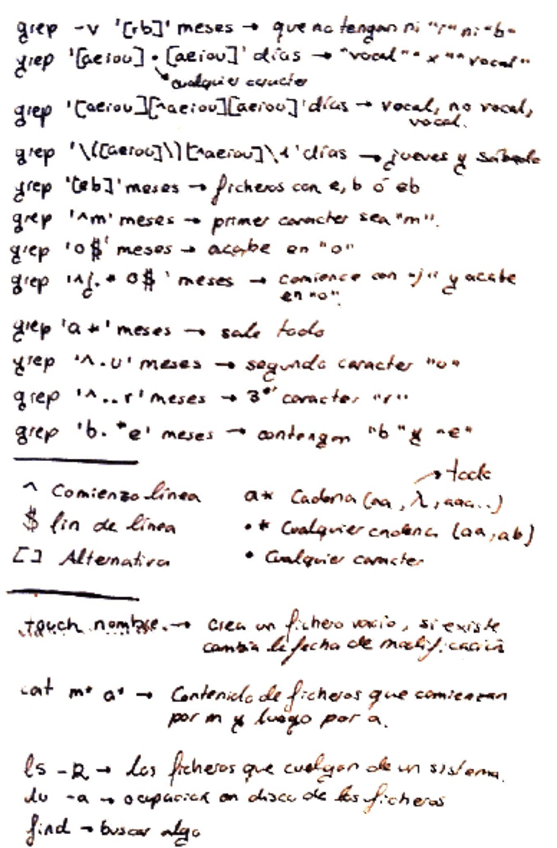 grep -v '[rb]' meses → que no tengan ni "r" ni "b"
grep '[aeiou] • [aeiou]' días → "vocal" "x" "vocal"
cualquier caracter
grep '[aeiou][^aeiou][aeiou]' días → vocal, no vocal,
vocal.
grep '\([aeiou]\)[^aeiou]\1' días → jueves y sábado
grep '[eb]' meses → ficheros con e, b ó eb
grep '^m' meses → primer caracter sea "m".
grep 'o$' meses → acabe en "o"
grep '^j.*o$' meses → comience con "j" y acabe
en "o".
grep 'a*' meses → sale todo
grep '^.u' meses → segundo caracter "u"
grep '^..r' meses → 3er caracter "r"
grep 'b.*e' meses → contengan "b" y "e"
→ todo
^ Comienzo línea a* Cadena (aa, λ, aaa..)
$ fin de línea •* Cualquier cadena (aa, ab)
[] Alternativa • Cualquier caracter
touch nombre → crea un fichero vacío, si existe
cambia la fecha de modificación
cat m* a* → Contenido de ficheros que comienzan
por m y luego por a.
ls -R → Los ficheros que cuelgan de un sistema.
du -a → ocupación en disco de los ficheros
find → buscar algo